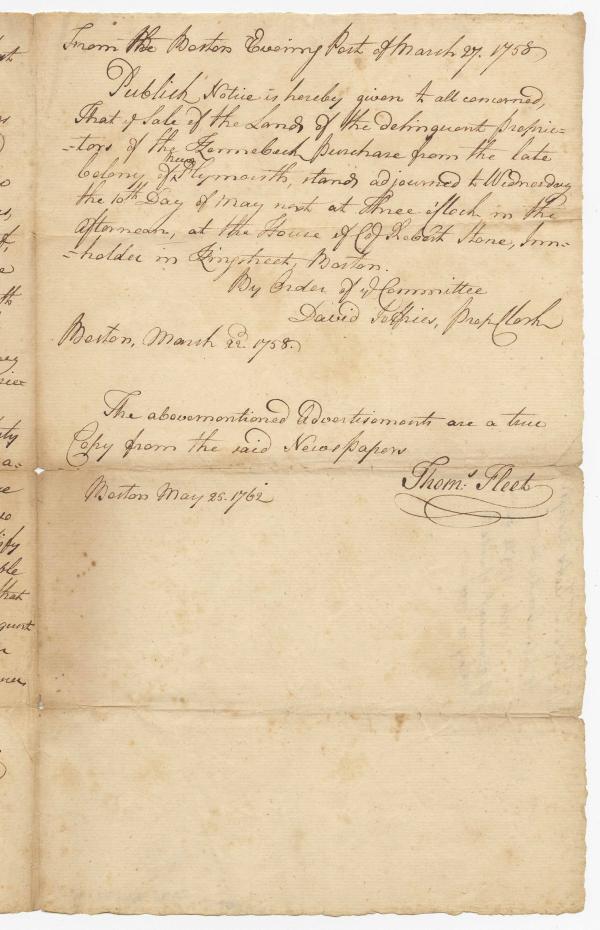 From the Boston Evening Post of March 27. 1758
Publick Notice is hereby given to all concerned,
That ye Sale of the Lands of the delinquent Proprie=
=tors of the Kennebeck purchase from the late
Colony of new Plymouth, stands adjourned to Wednesday
the 10th Day of May next at three o'Clock in the
afternoon, at the House of Cap Robert Stone, Inn=
=holder in Kingstreet, Boston.
By Order of ye Committee
David Jeffries, Prop Clerk
Boston, March 22d. 1758.
The abovementioned Advertisements are a true
Copy from the said News Papers
Thoms Fleet
Boston May 25. 1762